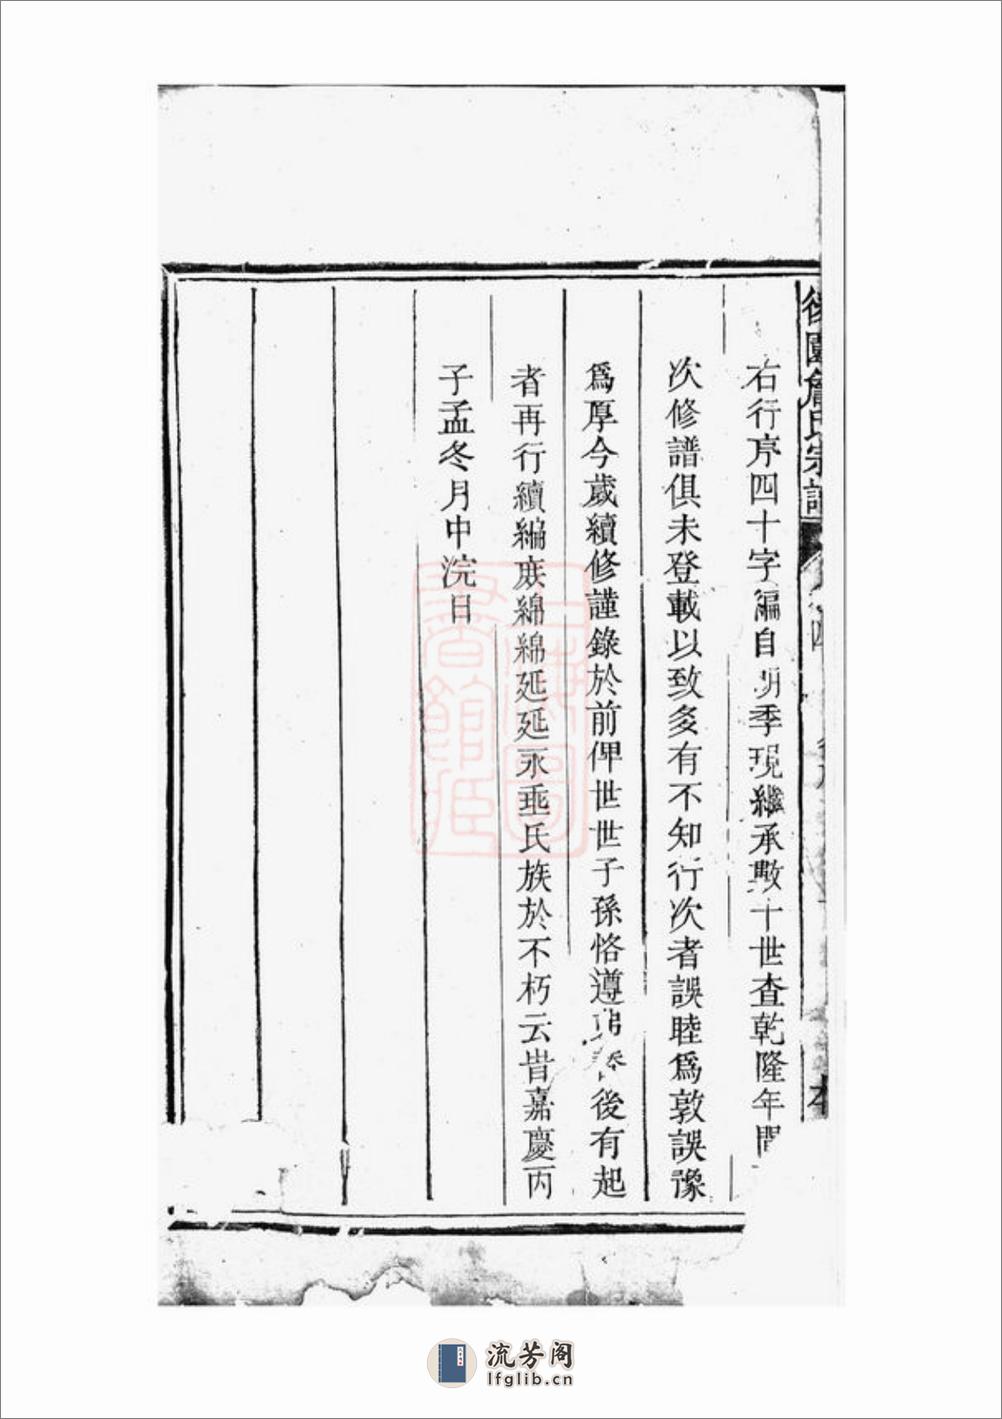 後園詹氏宗譜
右行序四十字編自明季現繼承數十世查乾隆年間
次修譜俱未登載以致多有不知行次者誤睦爲敦誤豫
爲厚今歲續修謹錄於前俾世世子孫恪遵 後有起
者再行續編庶綿綿延延永垂氏族於不朽云旹嘉慶丙
子孟冬月中浣日
上海圖書館藏
流芳阁
lfglib.cn